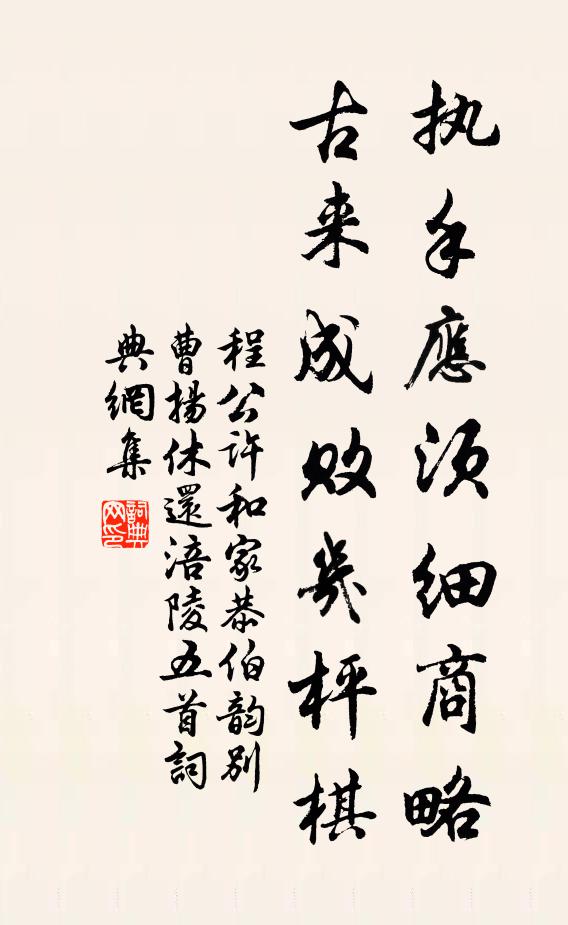 执手應須細商略
古来成敗幾枰棋
程公許和家恭伯韵别
曹揚休還涪陵五首詞
典網集
詞典网印